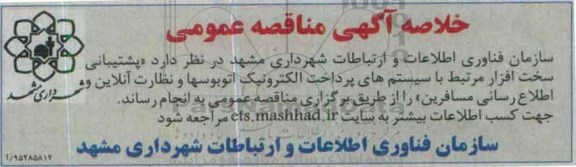 خلاصه آگهی مناقصه عمومی
سازمان فناوری اطلاعات و ارتباطات شهرداری مشهد در نظر دارد «پشتیبانی
سخت افزار مرتبط با سیستم های پرداخت الکترونیک اتوبوسها و نظارت آنلاین و
اطلاع رسانی مسافرین» را از طریق برگزاری مناقصه عمومی به انجام رساند.
جهت کسب اطلاعات بیشتر به سایت ets.mashhad.ir مراجعه شود
سازمان فناوری اطلاعات و ارتباطات شهرداری مشهد
شهرداری مشهد
/۹۵۲۸۵۸۱۲